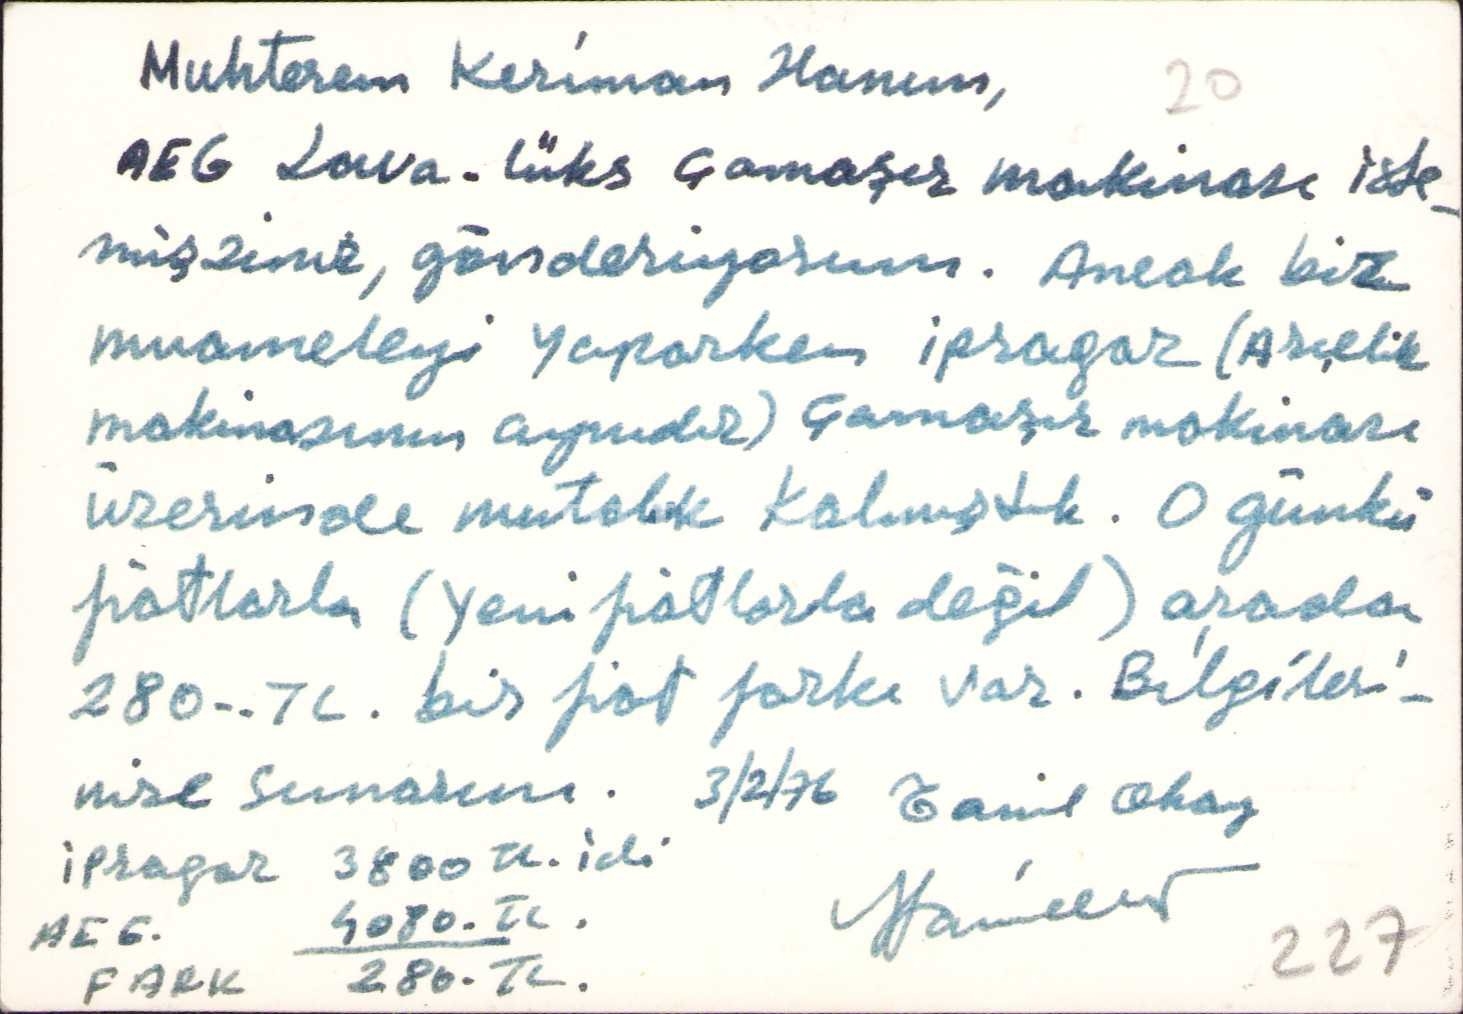 Muhterem Keriman Hanım,
20
AEG Lava-lüks Çamaşır makinası iste-
mişsiniz, gönderiyorum. Ancak biz
muameleyi yaparken ipragaz (Arçelik
makinasının aynıdır) Çamaşır makinası
üzerinde mutabık kalmıştık. O günkü
fiatlarla (yeni fiatlarla değil) arada
280-.TL. bir fiat farkı var. Bilgileri-
nize sunarım. 3/2/76 Tamil Okay
ipragaz 3800 TL. idi
AEG. 4080.TL.
FARK 280.TL.
227